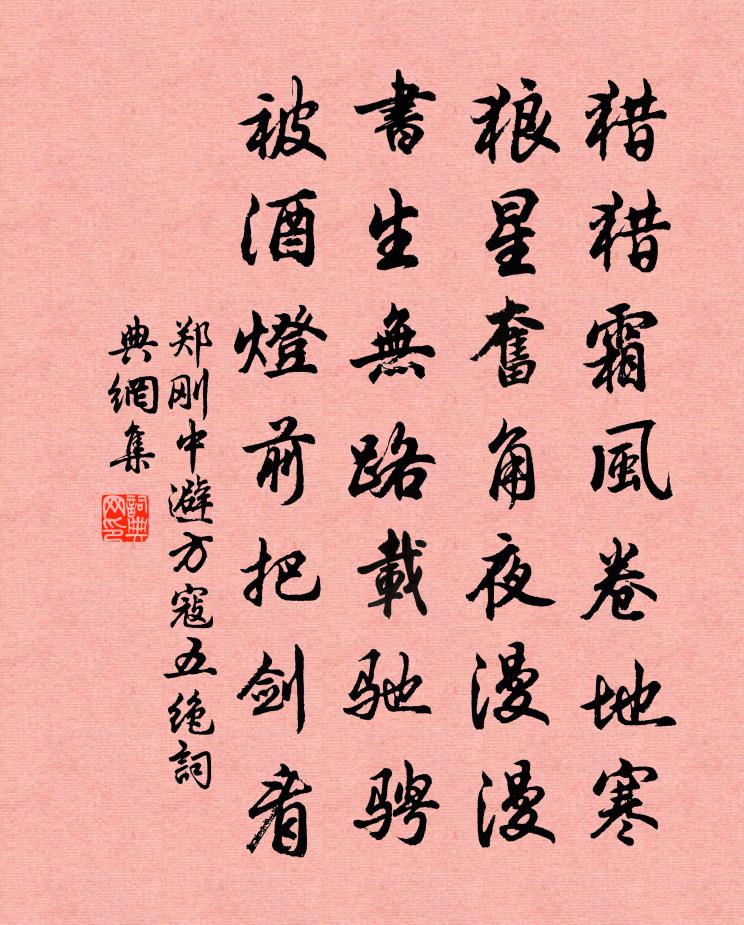 猎猎霜風卷地寒
狼星奮角夜漫漫
書生無路載驰骋
被酒燈前把劍看
郑刚中避方寇五绝詞
典網集
詞典網印